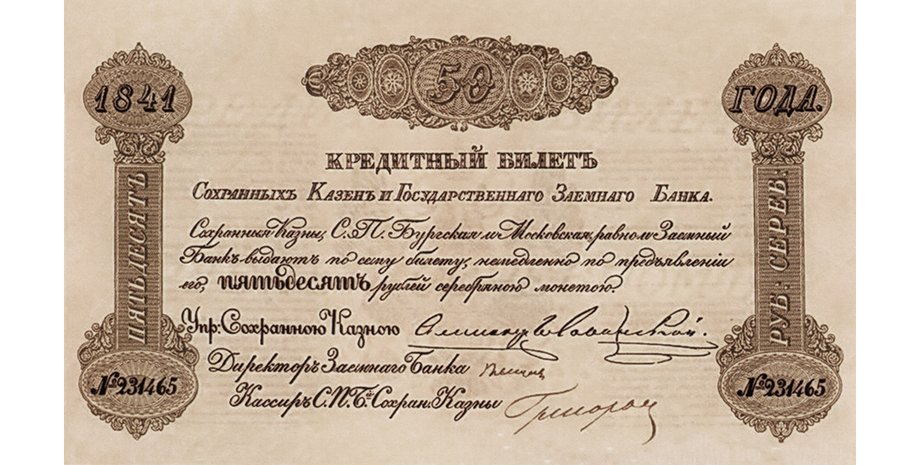 1841
50
ГОДА.
КРЕДИТНЫЙ БИЛЕТЪ
СОХРАННЫХЪ КАЗЕНЪ И ГОСУДАРСТВЕННАГО ЗАЕМНАГО БАНКА.
Сохранныя Казны, С.П. Бургская и Московская, равно и Заемный
Банкъ выдаютъ по сему билету, немедленно по предъявленіи
его, пятьдесятъ рублей серебряною монетою.
Упр: Сохранною Казною
Директоръ Заемнаго Банка
Кассиръ С.П.Б. Сохран. Казны
ПЯТЬДЕСЯТЪ
РУБ: СЕРЕБ:
№ 231465
№ 231465